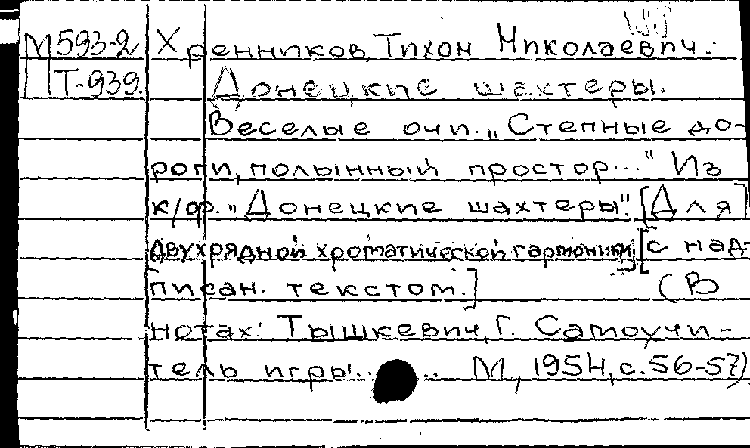 М593-2 Хренников, Тихон Николаевич.
Т-939. Донецкие шахтеры.
Веселые очи. „Степные до-
роги, полынный простор..." Из
к/ф. „Донецкие шахтеры". [Для]
двухрядной хроматической гармоники] [с над-
писан. текстом.] (В
нотах: Тышкевич, Г. Самоучи-
тель игры... М, 1954, с. 56-57)